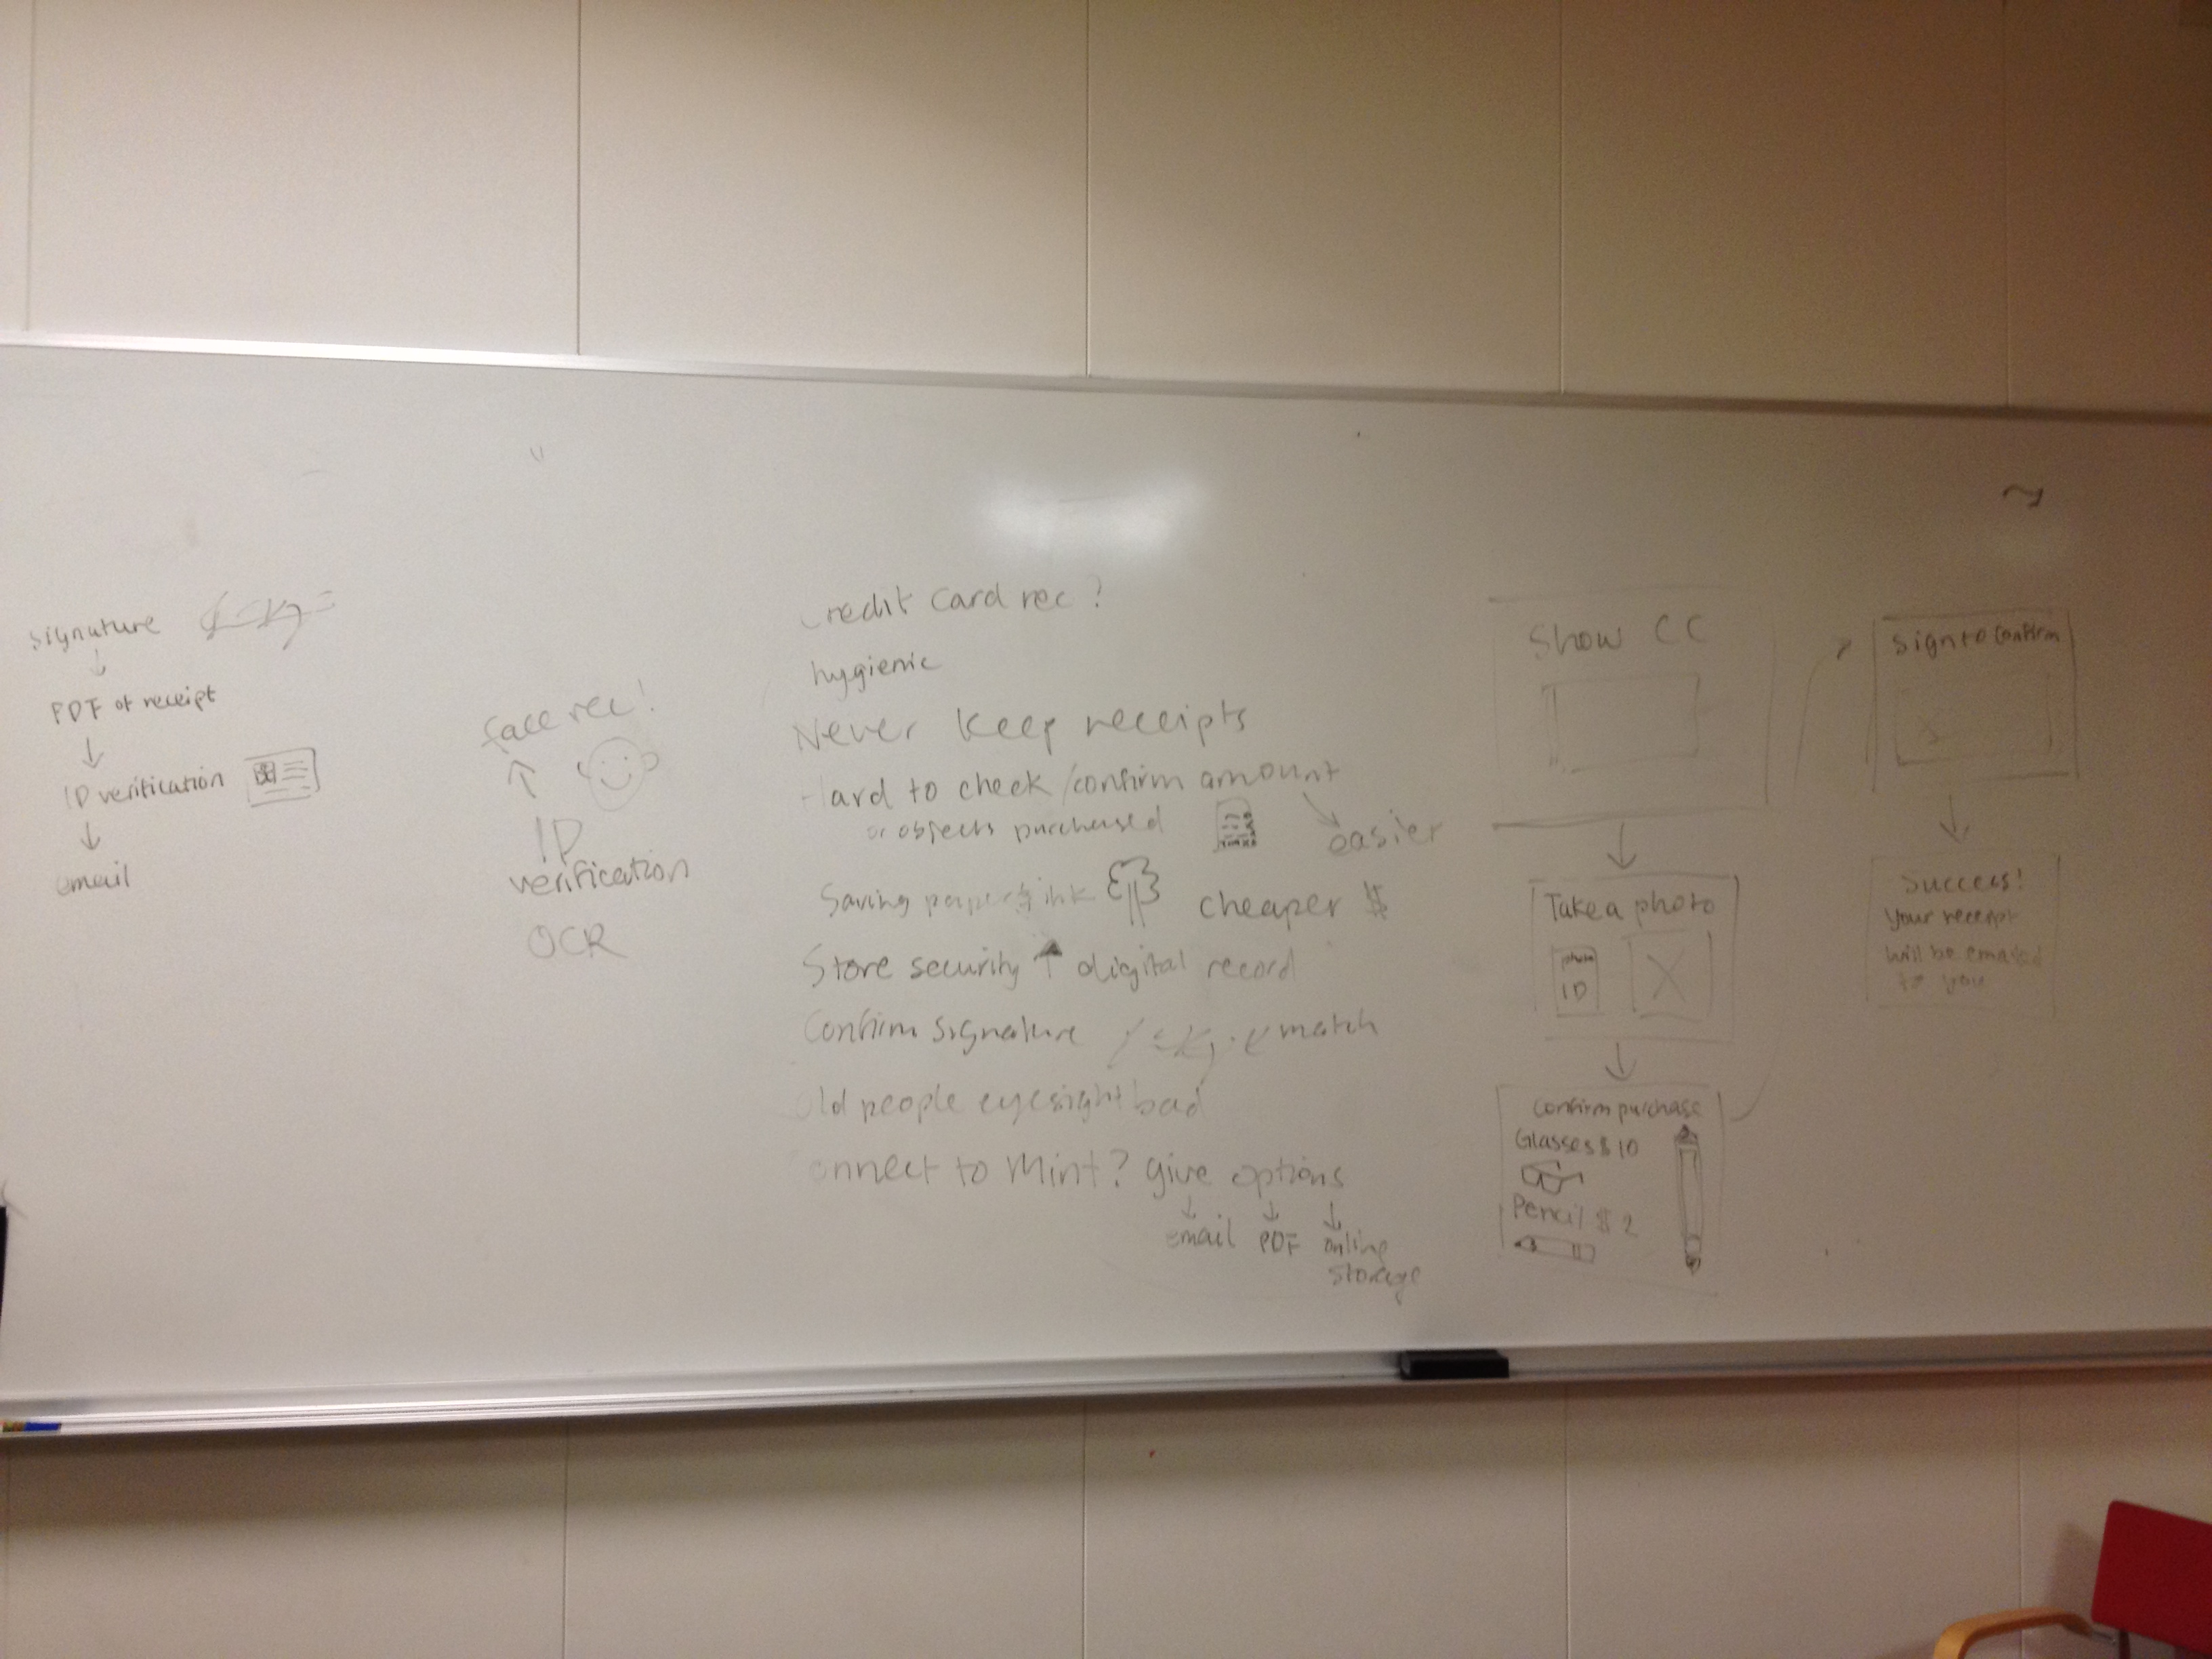 signature
PDF of receipt
ID verification
email
face rec!
ID
verification
OCR
Credit Card rec?
hygienic
Never keep receipts
Hard to check/confirm amount
or objects purchased
easier
Saving paper & ink
cheaper $
Store security ↑ digital record
Confirm signature
match
Old people eyesight bad
onnect to Mint? give options
email PDF online
storage
Show CC
Take a photo
photo
ID
Confirm purchase
Glasses $10
Pencil $2
Sign to Confirm
Success!
Your receipt
will be emailed
to you